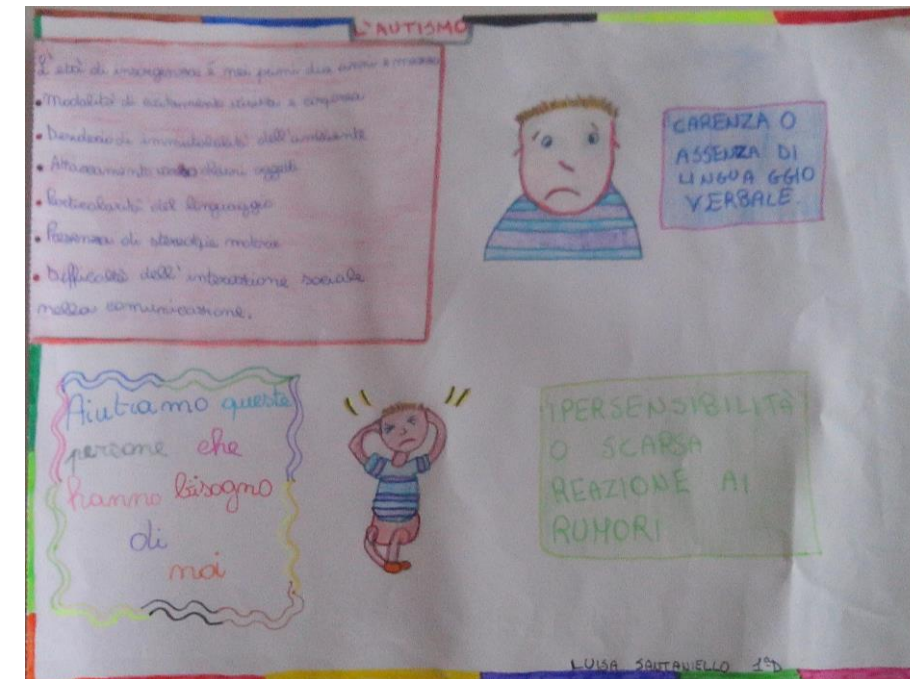 L'AUTISMO
L'età di insorgenza è nei primi due anni e mezzo
• Modalità di isolamento
• Desiderio di immutabilità dell'ambiente
• Attaccamento alcuni oggetti
• Particolarità del linguaggio
• Presenza di stereotipie motorie
• Difficoltà dell'interazione sociale
nella comunicazione.
CARENZA O
ASSENZA DI
LINGUAGGIO
VERBALE.
Aiutiamo queste
persone che
hanno bisogno
di
noi
IPERSENSIBILITÀ
O SCARSA
REAZIONE AI
RUMORI
LUISA SANTANIELLO 1ªD